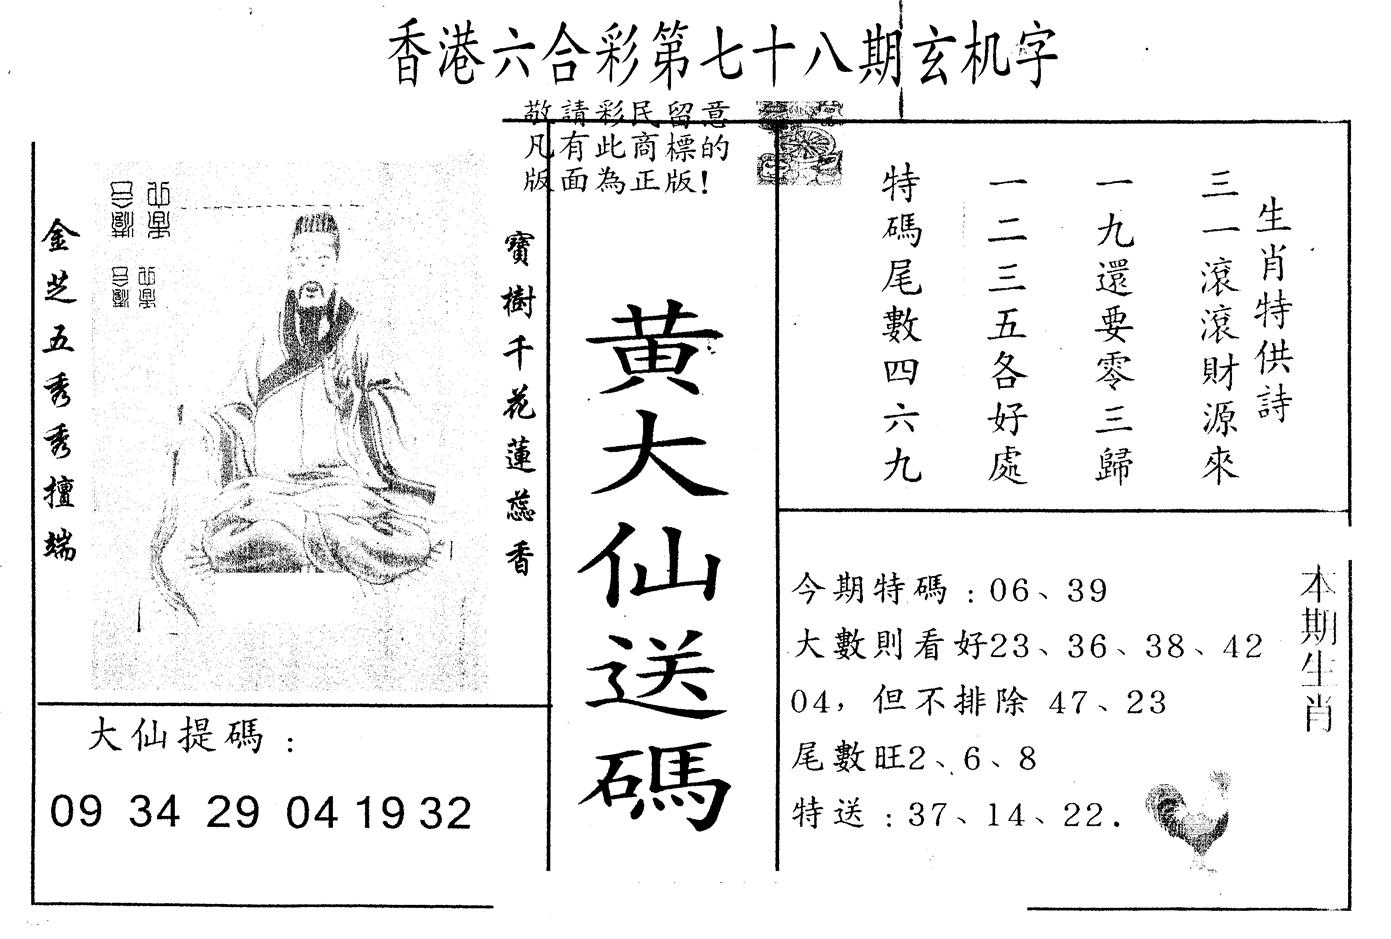 香港六合彩第七十八期玄机字
敬請彩民留意
凡有此商標的
版面為正版!
金芝五秀秀擅端
寶樹千花蓮蕊香
黄大仙送碼
生肖特供詩
三一滾滾財源來
一九還要零三歸
一二三五各好處
特碼尾數四六九
大仙提碼:
09 34 29 04 19 32
今期特碼:06、39
大數則看好23、36、38、42
04,但不排除 47、23
尾數旺2、6、8
特送:37、14、22.
本期生肖